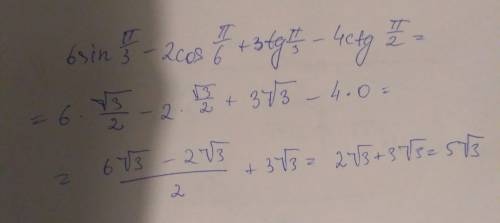 6sin π/3 − 2cos π/6 + 3tg π/3 − 4ctg π/2 =
= 6 · √3/2 − 2 · √3/2 + 3√3 − 4·0 =
= (6√3 − 2√3)/2 + 3√3 = 2√3 + 3√3 = 5√3